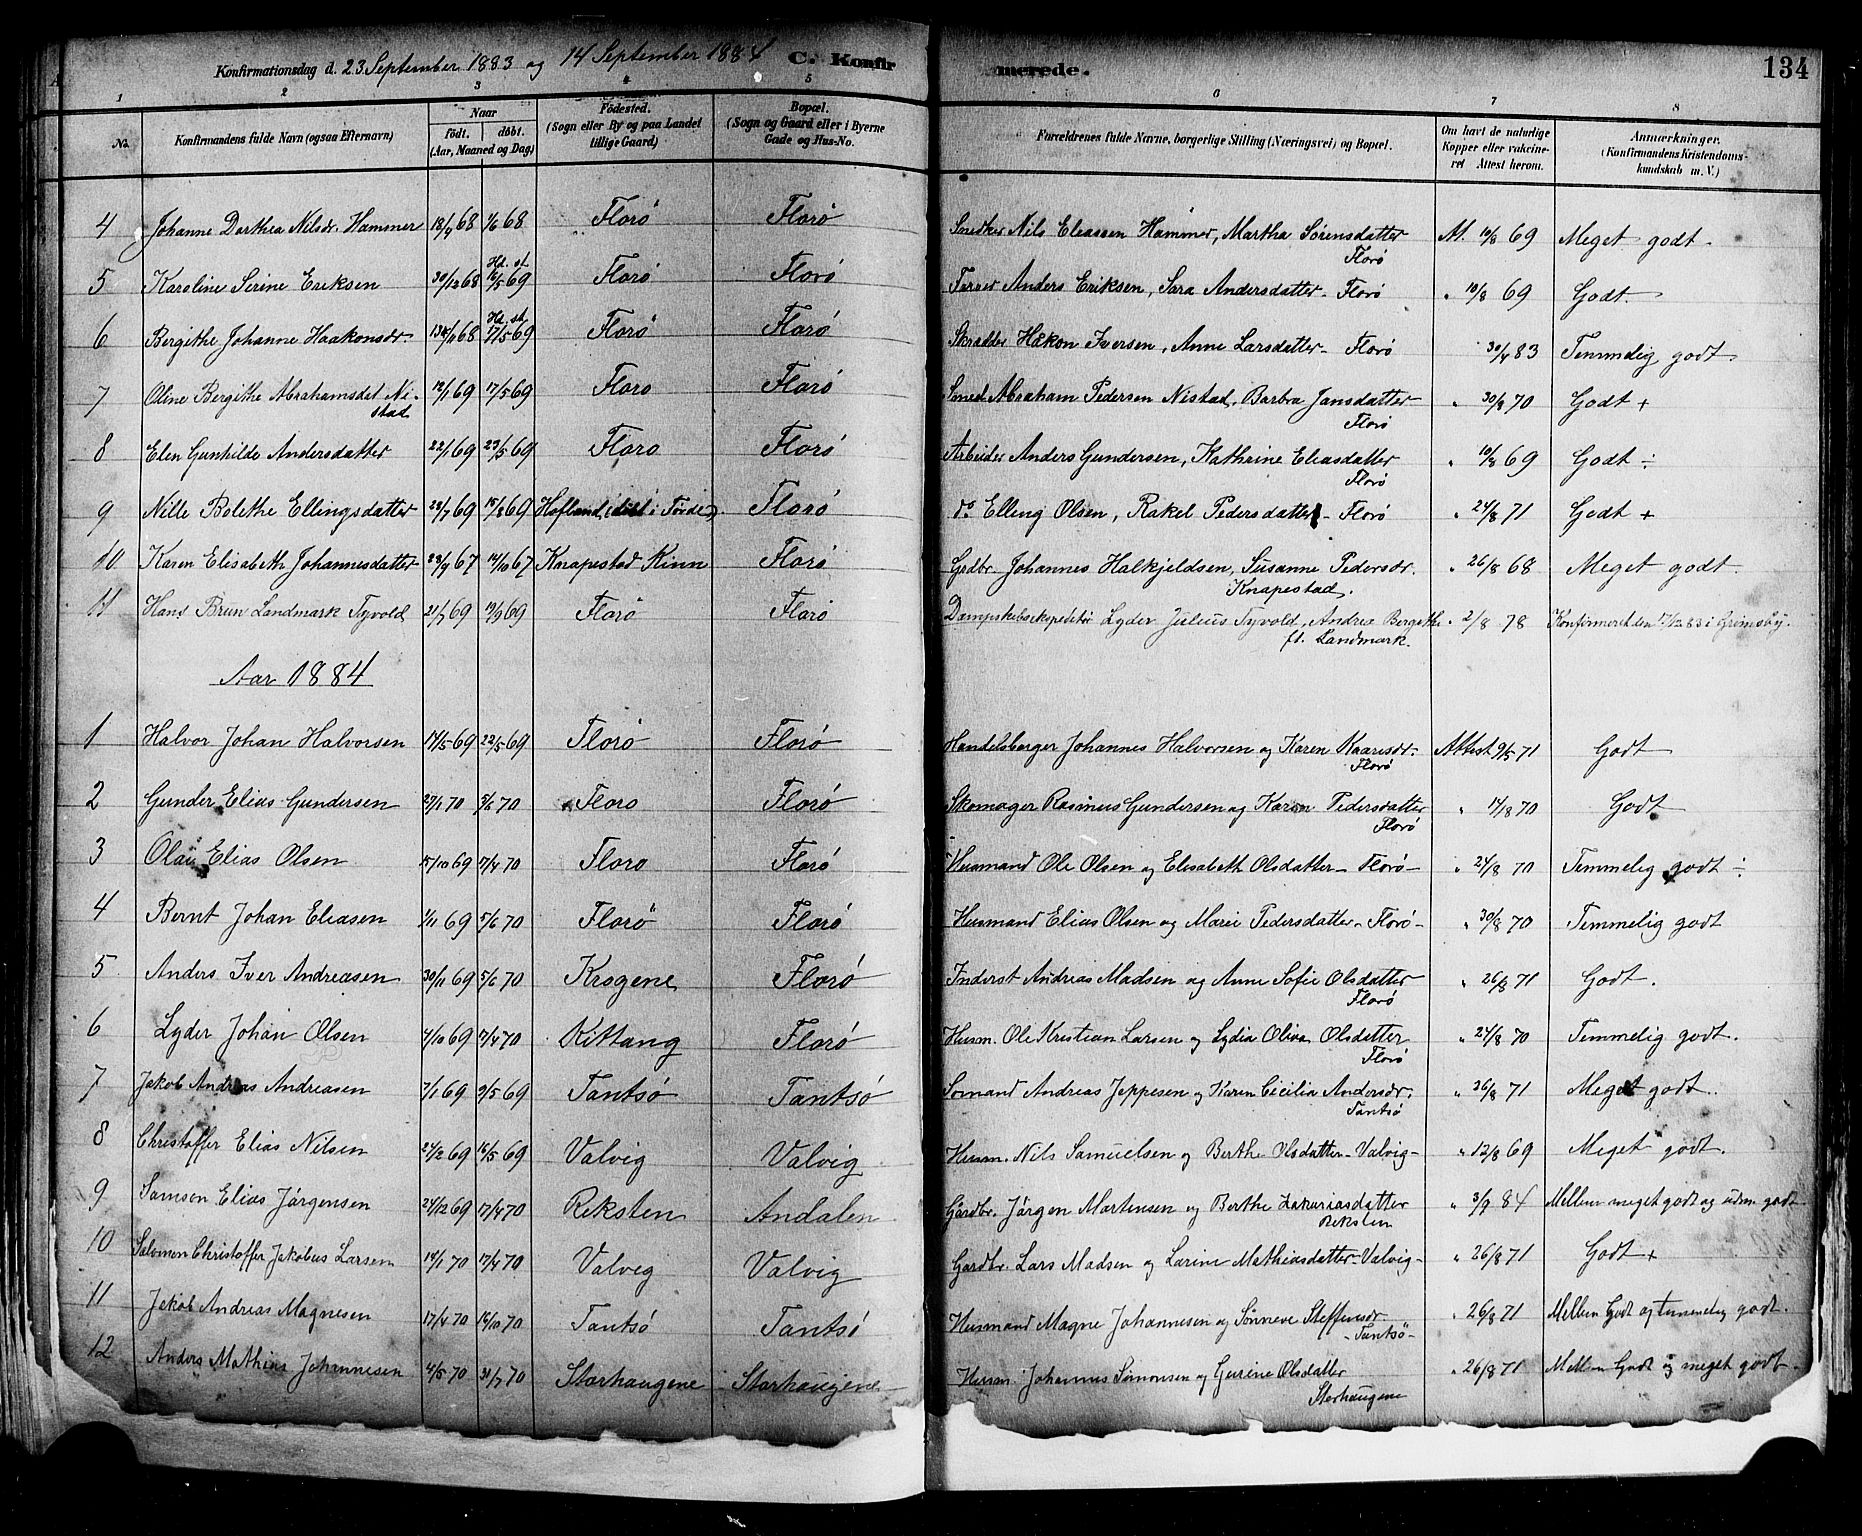 Konfirmationsdag d. 23 September 1883 og 14 September 1884 C. Konfirmerede. 134
1 2 3 4 5 6 7 8
No. Konfirmandens fulde Navn (ogsaa Efternavn) Naar födt. döbt. (Aar, Maaned og Dag) Födested. (Sogn eller By og paa Landet tillige Gaard) Bopæl. (Sogn og Gaard eller i Byerne Gade og Hus-No. Forældrenes fulde Navne, borgerlige Stilling (Næringsvei) og Bopæl. Om havt de naturlige Kopper eller vakcineret Attest herom. Anmærkninger. (Konfirmandens Kristendomskundskab m. V.)
4 Johanne Dorthea Nilsdr. Hammer 18/4 68 1/6 68 Florö Florö Snedker Nils Eleasen Hammer, Martha Sörensdatter Florö At. 10/8 69 Meget godt.
5 Karoline Serine Eriksen 30/12 68 Hd. st. 16/5 69 Florö Florö Farver Anders Eriksen, Sara Andersdatter - Florö " 10/8 69 Godt.
6 Bergithe Johanne Haakonsdr. 68 Hd. st. 17/5 69 Florö Florö Skrædder Håkon Iversen, Anne Larsdatter - Florö 30/4 83 Temmelig godt.
7 Oline Bergithe Abrahamsdet Nistad 12/1 69 17/5 69 Floro Florö Smed Abraham Pedersen Nistad, Barbra Jansdatter Florö " 30/8 70 Godt +
8 Elen Gunhilde Andersdatter 22/1 69 23/5 69 Floro Florö Arbeider Anders Gundersen, Kathrine Eliasdatter Florö " 10/8 69 Godt ÷
9 Nille Bolethe Ellingsdatter 23/7 69 15/8 69 Hofland i Förde Florö do Elling Olsen, Rakel Pedersdatter - Florö " 24/8 71 Godt +
10 Karen Elisabeth Johannesdatter 23/9 67 14/10 67 Knapestad Kinn Florö Grdbr. Johannes Halkjeldsen, Susanne Pedersdr. Knapestad. " 26/8 68 Meget godt.
11 Hans Brun Landmark Tyvold 21/7 69 19/9 69 Florö Florö Dampskibsexpeditör Lyder Julius Tyvold, Andrea Bergithe f. Landmark. " 2/8 78 Konfirmeret den 17/12 83 i Grimsby.
Aar 1884
1 Halvor Johan Halvorsen 14/5 69 22/5 69 Florö Florö Handelsborger Johannes Halvorsen og Karen Kaarisdr. Florö Attest 9/5 71 Godt
2 Gunder Elias Gundersen 27/1 70 5/6 70 Floro Florö Skomager Rasmus Gundersen og Karen Pedersdatter Florö " 14/8 70 Godt
3 Olai Elias Olsen 15/10 69 17/4 70 Floro Florö Husmand Ole Olsen og Elisabeth Olsdatter - Florö - " 24/8 70 Temmelig godt ÷
4 Bernt Johan Eliasen 1/11 69 5/6 70 Florö Florö Husmand Elias Olsen og Marie Pedersdatter - Florö - " 30/8 70 Temmelig godt
5 Anders Iver Andreasen 30/11 69 5/6 70 Krogene Florö Inderst Andreas Madsen og Anne Sofie Olsdatter Florö " 26/8 71 Godt.
6 Lyder Johan Olsen 4/10 69 17/4 70 Kittang Florö Husm. Ole Kristian Larsen og Lydia Oliva Olsdatter Florö " 24/8 70 Temmelig godt.
7 Jakob Andreas Andreasen 7/1 69 9/5 69 Tantsö Tantsö Sömand Andreas Jeppesen og Karen Cecilia Andersdr. Tantsö " 26/8 71 Meget godt.
8 Christoffer Elias Nilsen 24/2 69 16/5 69 Valvig Valvig Husm. Nils Samuelsen og Berthe Olsdatter - Valvig - " 12/8 69 Meget godt.
9 Samson Elias Jörgensen 24/12 69 17/4 70 Reksten Andalen Gårdbr. Jörgen Mortensen og Berthe Zakariasdatter Reksten " 3/9 84 Mellem meget godt og udm. godt
10 Salomon Christoffer Jakobus Larsen 14/1 70 17/4 70 Valvig Valvig Gardbr. Lars Madsen og Larine Mathiasdatter - Valvig - " 26/8 71 Godt +
11 Jakob Andreas Magnesen 17/4 70 16/10 70 Tantsö Tantsö Husmand Magne Johannesen og Sönneve Steffensdr - Tantsö - " 26/8 71 Mellem Godt og temmelig godt.
12 Anders Mathias Johannesen 4/5 70 31/7 70 Storhaugene Storhaugene Husm. Johannes Simonsen og Gurine Olsdatter Storhaugene " 26/8 71 Mellem Godt og meget godt.